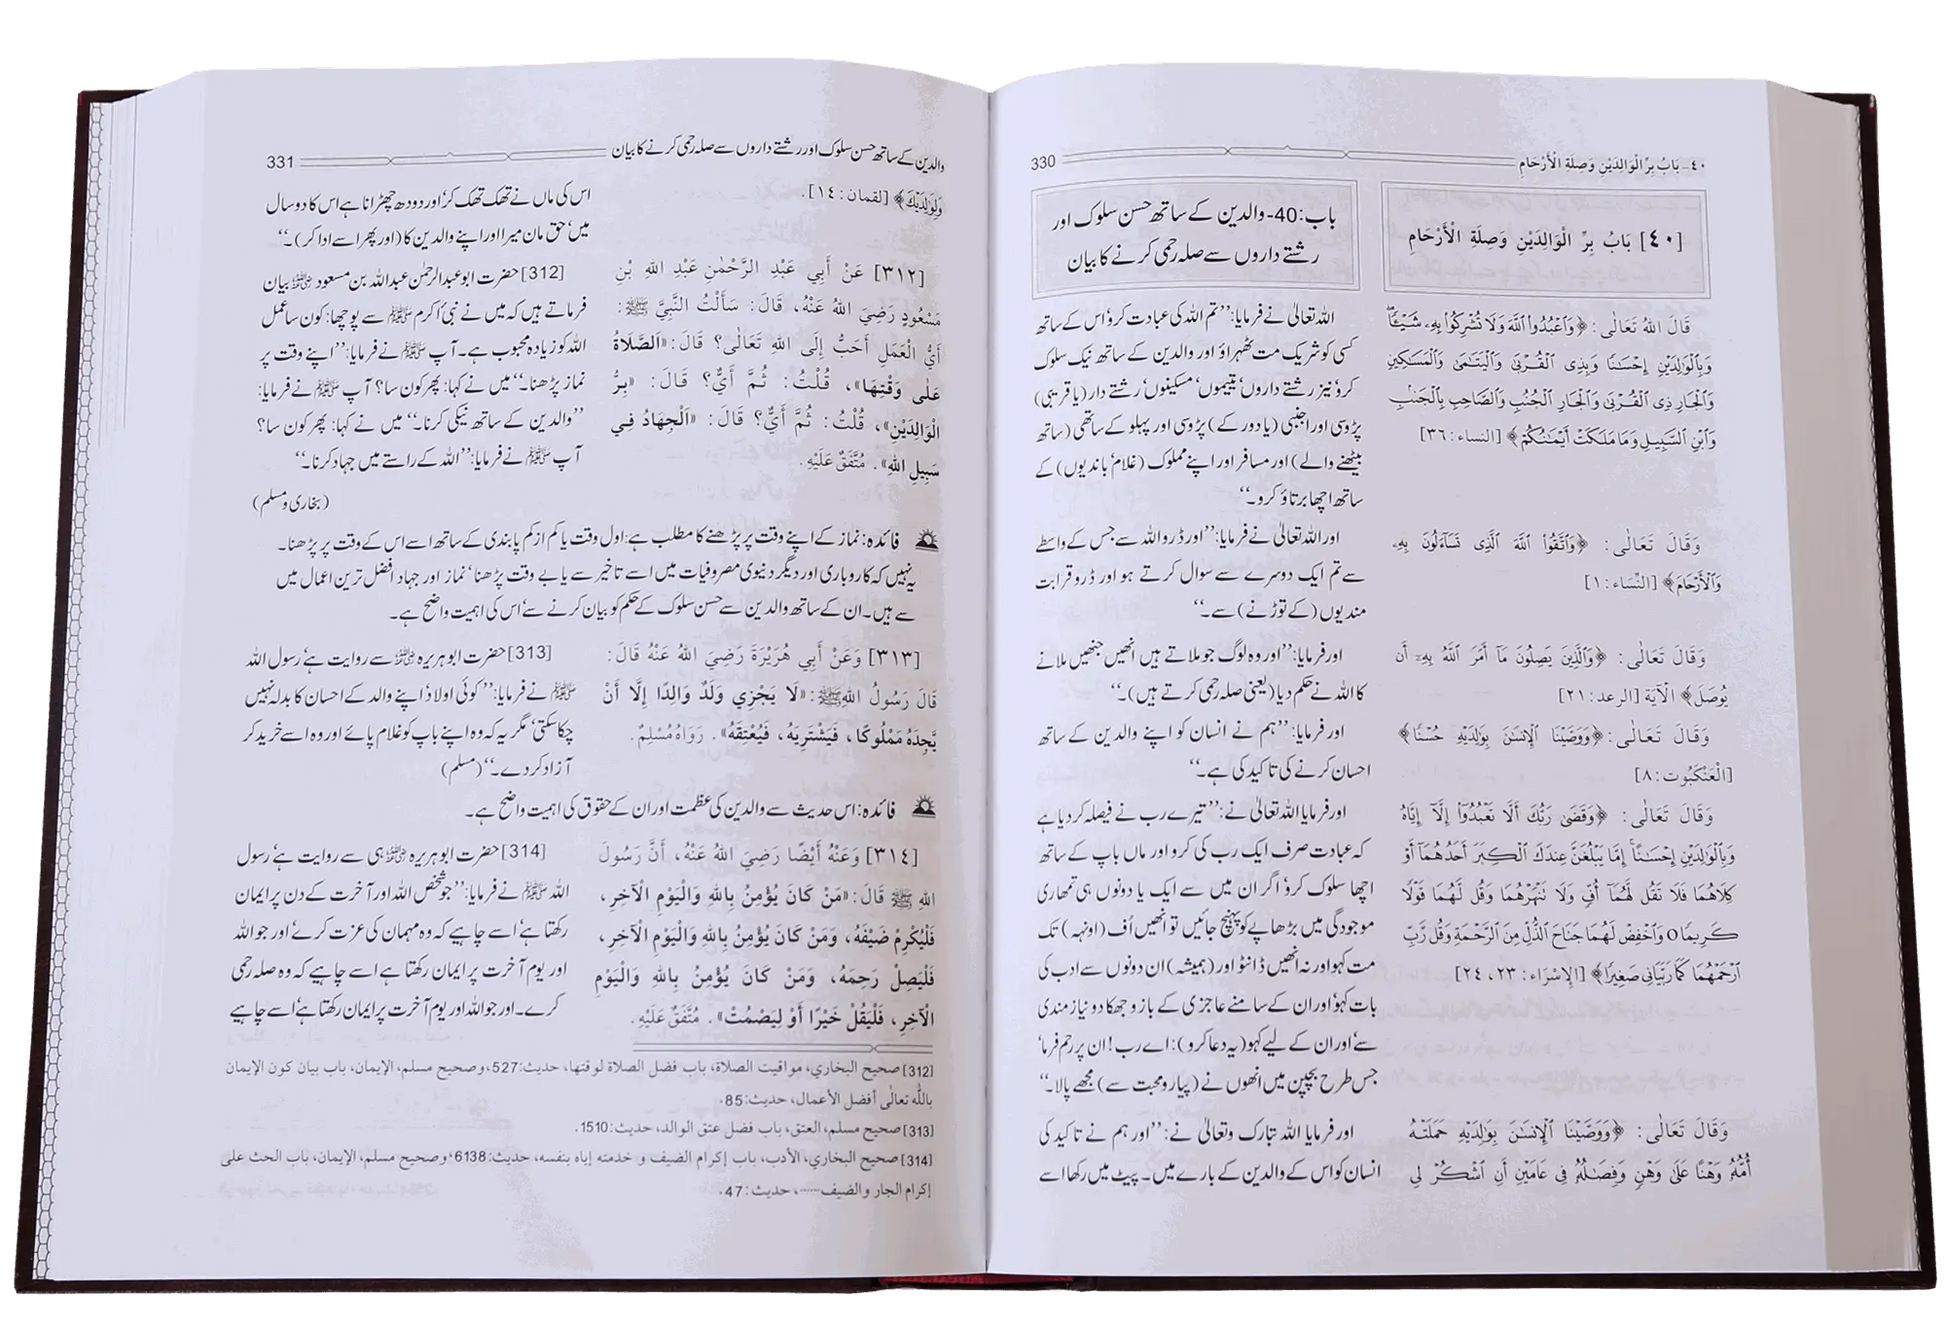 ٤٠- بَابُ بِرِّ الْوَالِدَيْنِ وَصِلَةِ الْأَرْحَامِ 330
[٤٠] بَابُ بِرِّ الْوَالِدَيْنِ وَصِلَةِ الْأَرْحَامِ
قَالَ اللهُ تَعَالٰى: ﴿وَٱعْبُدُوا۟ ٱللَّهَ وَلَا تُشْرِكُوا۟ بِهِۦ شَيْـًٔا ۖ
وَبِٱلْوَٰلِدَيْنِ إِحْسَـٰنًا وَبِذِى ٱلْقُرْبَىٰ وَٱلْيَتَـٰمَىٰ وَٱلْمَسَـٰكِينِ
وَٱلْجَارِ ذِى ٱلْقُرْبَىٰ وَٱلْجَارِ ٱلْجُنُبِ وَٱلصَّاحِبِ بِٱلْجَنۢبِ
وَٱبْنِ ٱلسَّبِيلِ وَمَا مَلَكَتْ أَيْمَـٰنُكُمْ﴾ [النساء: ٣٦]
وَقَالَ تَعَالٰى: ﴿وَٱتَّقُوا۟ ٱللَّهَ ٱلَّذِى تَسَآءَلُونَ بِهِۦ
وَٱلْأَرْحَامَ﴾ [النِّساء: ١]
وَقَالَ تَعَالٰى: ﴿وَٱلَّذِينَ يَصِلُونَ مَآ أَمَرَ ٱللَّهُ بِهِۦٓ أَن
يُوصَلَ﴾ الْآيَة [الرعد: ٢١]
وَقَالَ تَعَالٰى: ﴿وَوَصَّيْنَا ٱلْإِنسَـٰنَ بِوَٰلِدَيْهِ حُسْنًا﴾
[الْعَنْكَبُوت: ٨]
وَقَالَ تَعَالٰى: ﴿وَقَضَىٰ رَبُّكَ أَلَّا تَعْبُدُوٓا۟ إِلَّآ إِيَّاهُ
وَبِٱلْوَٰلِدَيْنِ إِحْسَـٰنًا ۚ إِمَّا يَبْلُغَنَّ عِندَكَ ٱلْكِبَرَ أَحَدُهُمَآ أَوْ
كِلَاهُمَا فَلَا تَقُل لَّهُمَآ أُفٍّ وَلَا تَنْهَرْهُمَا وَقُل لَّهُمَا قَوْلًا
كَرِيمًا ٥ وَٱخْفِضْ لَهُمَا جَنَاحَ ٱلذُّلِّ مِنَ ٱلرَّحْمَةِ وَقُل رَّبِّ
ٱرْحَمْهُمَا كَمَا رَبَّيَانِى صَغِيرًا﴾ [الإسْرَاء: ٢٣، ٢٤]
وَقَالَ تَعَالٰى: ﴿وَوَصَّيْنَا ٱلْإِنسَـٰنَ بِوَٰلِدَيْهِ حَمَلَتْهُ
أُمُّهُۥ وَهْنًا عَلَىٰ وَهْنٍ وَفِصَـٰلُهُۥ فِى عَامَيْنِ أَنِ ٱشْكُرْ لِى
باب:40- والدین کے ساتھ حسن سلوک اور
رشتے داروں سے صلہ رحمی کرنے کا بیان
اللہ تعالیٰ نے فرمایا: ’’تم اللہ کی عبادت کرو‘ اس کے ساتھ
کسی کو شریک مت ٹھہراؤ اور والدین کے ساتھ نیک سلوک
کرو‘ نیز رشتے داروں‘ یتیموں‘ مسکینوں‘ رشتے دار (یا قریبی)
پڑوسی اور اجنبی (یا دور کے) پڑوسی اور پہلو کے ساتھی (ساتھ
بیٹھنے والے) اور مسافر اور اپنے مملوک (غلام‘ باندیوں) کے
ساتھ اچھا برتاؤ کرو۔‘‘
اور اللہ تعالیٰ نے فرمایا: ’’اور ڈرو اللہ سے جس کے واسطے
سے تم ایک دوسرے سے سوال کرتے ہو اور ڈرو قرابت
مندیوں (کے توڑنے) سے۔‘‘
اور فرمایا: ’’اور وہ لوگ جو ملاتے ہیں انھیں جنھیں ملانے
کا اللہ نے حکم دیا (یعنی صلہ رحمی کرتے ہیں)۔‘‘
اور فرمایا: ’’ہم نے انسان کو اپنے والدین کے ساتھ
احسان کرنے کی تاکید کی ہے۔‘‘
اور فرمایا اللہ تعالیٰ نے: ’’تیرے رب نے فیصلہ کر دیا ہے
کہ عبادت صرف ایک رب کی کرو اور ماں باپ کے ساتھ
اچھا سلوک کرو‘ اگر ان میں سے ایک یا دونوں ہی تمھاری
موجودگی میں بڑھاپے کو پہنچ جائیں تو انھیں اُف (اونہہ) تک
مت کہو اور نہ انھیں ڈانٹو اور (ہمیشہ) ان دونوں سے ادب کی
بات کہو‘ اور ان کے سامنے عاجزی کے بازو جھکا دو نیاز مندی
سے‘ اور ان کے لیے کہو (یہ دعا کرو): اے رب! ان پر رحم فرما‘
جس طرح بچپن میں انھوں نے (پیار و محبت سے) مجھے پالا۔‘‘
اور فرمایا اللہ تبارک وتعالیٰ نے: ’’اور ہم نے تاکید کی
انسان کو اس کے والدین کے بارے میں۔ پیٹ میں رکھا اسے
والدین کے ساتھ حسن سلوک اور رشتے داروں سے صلہ رحمی کرنے کا بیان 331
وَلِوَٰلِدَيْكَ﴾ [لقمان: ١٤].
[٣١٢] عَنْ أَبِي عَبْدِ الرَّحْمٰنِ عَبْدِ اللهِ بْنِ
مَسْعُودٍ رَضِيَ اللهُ عَنْهُ، قَالَ: سَأَلْتُ النَّبِيَّ ﷺ:
أَيُّ الْعَمَلِ أَحَبُّ إِلَى اللهِ تَعَالٰى؟ قَالَ: «اَلصَّلَاةُ
عَلٰى وَقْتِهَا»، قُلْتُ: ثُمَّ أَيٌّ؟ قَالَ: «بِرُّ
الْوَالِدَيْنِ»، قُلْتُ: ثُمَّ أَيٌّ؟ قَالَ: «اَلْجِهَادُ فِي
سَبِيلِ اللهِ». مُتَّفَقٌ عَلَيْهِ.
اس کی ماں نے تھک تھک کر‘ اور دودھ چھڑانا ہے اس کا دو سال
میں‘ حق مان میرا اور اپنے والدین کا (اور پھر اسے ادا کر)۔‘‘
[312] حضرت ابو عبدالرحمٰن عبداللہ بن مسعود ؓ بیان
فرماتے ہیں کہ میں نے نبیٔ اکرم ﷺ سے پوچھا: کون سا عمل
اللہ کو زیادہ محبوب ہے۔ آپ ﷺ نے فرمایا: ’’اپنے وقت پر
نماز پڑھنا۔‘‘ میں نے کہا: پھر کون سا؟ آپ ﷺ نے فرمایا:
’’والدین کے ساتھ نیکی کرنا۔‘‘ میں نے کہا: پھر کون سا؟
آپ ﷺ نے فرمایا: ’’اللہ کے راستے میں جہاد کرنا۔‘‘
(بخاری و مسلم)
فائدہ: نماز کے اپنے وقت پر پڑھنے کا مطلب ہے: اول وقت یا کم از کم پابندی کے ساتھ اسے اس کے وقت پر پڑھنا۔
یہ نہیں کہ کاروباری اور دیگر دنیوی مصروفیات میں اسے تاخیر سے یا بے وقت پڑھنا‘ نماز اور جہاد افضل ترین اعمال میں
سے ہیں۔ ان کے ساتھ والدین سے حسن سلوک کے حکم کو بیان کرنے سے‘ اس کی اہمیت واضح ہے۔
[٣١٣] وَعَنْ أَبِي هُرَيْرَةَ رَضِيَ اللهُ عَنْهُ قَالَ:
قَالَ رَسُولُ اللهِ ﷺ: «لَا يَجْزِي وَلَدٌ وَالِدًا إِلَّا أَنْ
يَّجِدَهُ مَمْلُوكًا، فَيَشْتَرِيَهُ، فَيُعْتِقَهُ». رَوَاهُ مُسْلِمٌ.
[313] حضرت ابو ہریرہ ؓ سے روایت ہے‘ رسول اللہ
ﷺ نے فرمایا: ’’کوئی اولاد اپنے والد کے احسان کا بدلہ نہیں
چکا سکتی‘ مگر یہ کہ وہ اپنے باپ کو غلام پائے اور وہ اسے خرید کر
آزاد کر دے۔‘‘ (مسلم)
فائدہ: اس حدیث سے والدین کی عظمت اور ان کے حقوق کی اہمیت واضح ہے۔
[٣١٤] وَعَنْهُ أَيْضًا رَضِيَ اللهُ عَنْهُ، أَنَّ رَسُولَ
اللهِ ﷺ قَالَ: «مَنْ كَانَ يُؤْمِنُ بِاللهِ وَالْيَوْمِ الْآخِرِ،
فَلْيُكْرِمْ ضَيْفَهُ، وَمَنْ كَانَ يُؤْمِنُ بِاللهِ وَالْيَوْمِ الْآخِرِ،
فَلْيَصِلْ رَحِمَهُ، وَمَنْ كَانَ يُؤْمِنُ بِاللهِ وَالْيَوْمِ
الْآخِرِ، فَلْيَقُلْ خَيْرًا أَوْ لِيَصْمُتْ». مُتَّفَقٌ عَلَيْهِ.
[314] حضرت ابو ہریرہ ؓ ہی سے روایت ہے‘ رسول
اللہ ﷺ نے فرمایا: ’’جو شخص اللہ اور آخرت کے دن پر ایمان
رکھتا ہے‘ اسے چاہیے کہ وہ مہمان کی عزت کرے‘ اور جو اللہ
اور یوم آخرت پر ایمان رکھتا ہے اسے چاہیے کہ وہ صلہ رحمی
کرے۔ اور جو اللہ اور یوم آخرت پر ایمان رکھتا ہے‘ اسے چاہیے
[312] صحيح البخاري، مواقيت الصلاة، باب فضل الصلاة لوقتها، حديث:527، وصحيح مسلم، الإيمان، باب بيان كون الإيمان
بالله تعالى أفضل الأعمال، حديث:85.
[313] صحيح مسلم، العتق، باب فضل عتق الوالد، حديث:1510.
[314] صحيح البخاري، الأدب، باب إكرام الضيف و خدمته إياه بنفسه، حديث:6138، وصحيح مسلم، الإيمان، باب الحث على
إكرام الجار والضيف......، حديث:47.